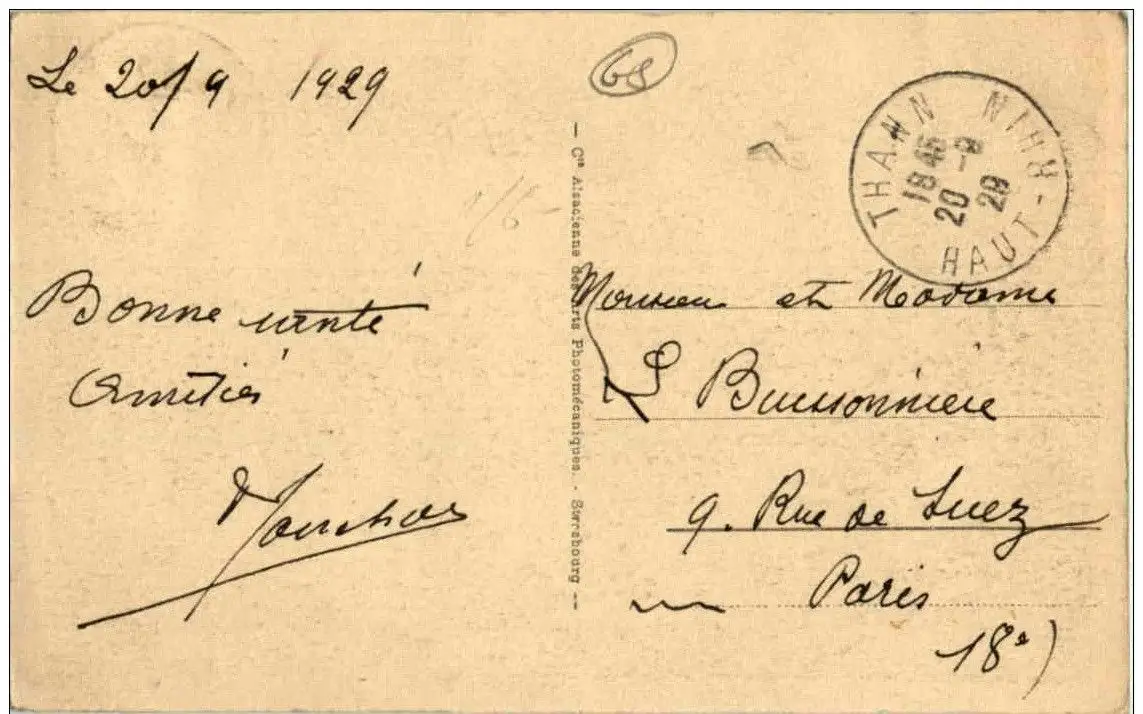 Le 20/9 1929
Bonne santé
Amitiés
68
THANN HAUT-RHIN
18 45
20 -9
29
— Cie Alsacienne des Arts Photomécaniques. - Strasbourg —
Monsieur et Madame
Buissonnière
9. Rue de Suez
Paris
18e)